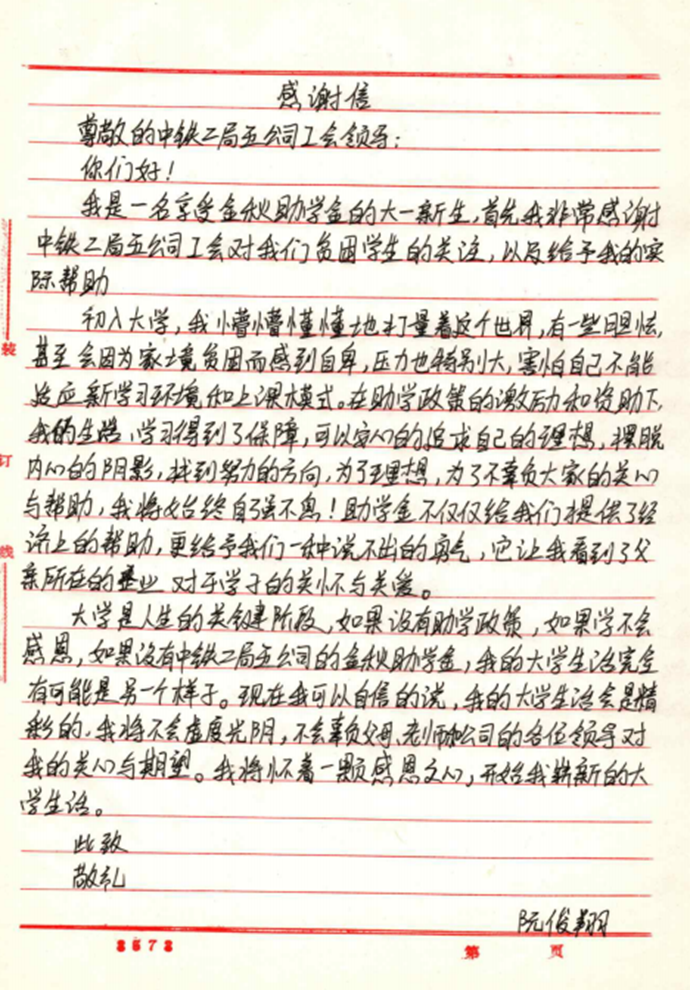 感谢信
尊敬的中铁二局五公司工会领导：
你们好！
我是一名享受金秋助学金的大一新生，首先我非常感谢
中铁二局五公司工会对我们贫困学生的关注，以及给予我的实
际帮助
初入大学，我懵懵懂懂地打量着这个世界，有一些胆怯，
甚至会因为家境贫困而感到自卑，压力也特别大，害怕自己不能
适应新学习环境和上课模式。在助学政策的激励和资助下，
我的生活、学习得到了保障，可以安心的追求自己的理想，摆脱
内心的阴影，找到努力的方向，为了理想，为了不辜负大家的关心
与帮助，我将始终自强不息！助学金不仅仅给我们提供了经
济上的帮助，更给予我们一种说不出的勇气，它让我看到了父
亲所在的企业对于学子的关怀与关爱。
大学是人生的关键阶段，如果没有助学政策，如果学不会
感恩，如果没有中铁二局五公司的金秋助学金，我的大学生活完全
有可能是另一个样子。现在我可以自信的说，我的大学生活会是精
彩的，我将不会虚度光阴，不会辜负父母、老师和公司的各位领导对
我的关心与期望。我将怀着一颗感恩之心，开始我崭新的大
学生活。
此致
敬礼
阮俊翔
装
订
线
3573
第 页